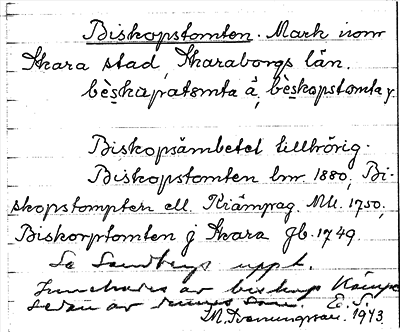 Biskopstomten. Mark inom
Skara stad, Skaraborgs län.
bèskåpatomta å, bèskopstomta y.
Biskopsämbetet tillhörig.
Biskopstomten lmr. 1880, Bi-
skopstompten ell. Krämpag. MU. 1750,
Biskorptomten g Skara Jb. 1749.
Se Sandbergs uppt.
Innehades av biskop Kämpe
sedan av dennes son. E. S.
M. 1943